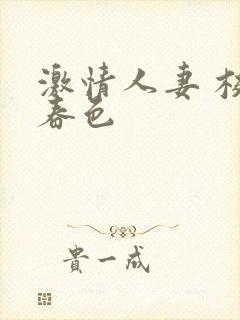 激情人妻 校
春色
貴一成